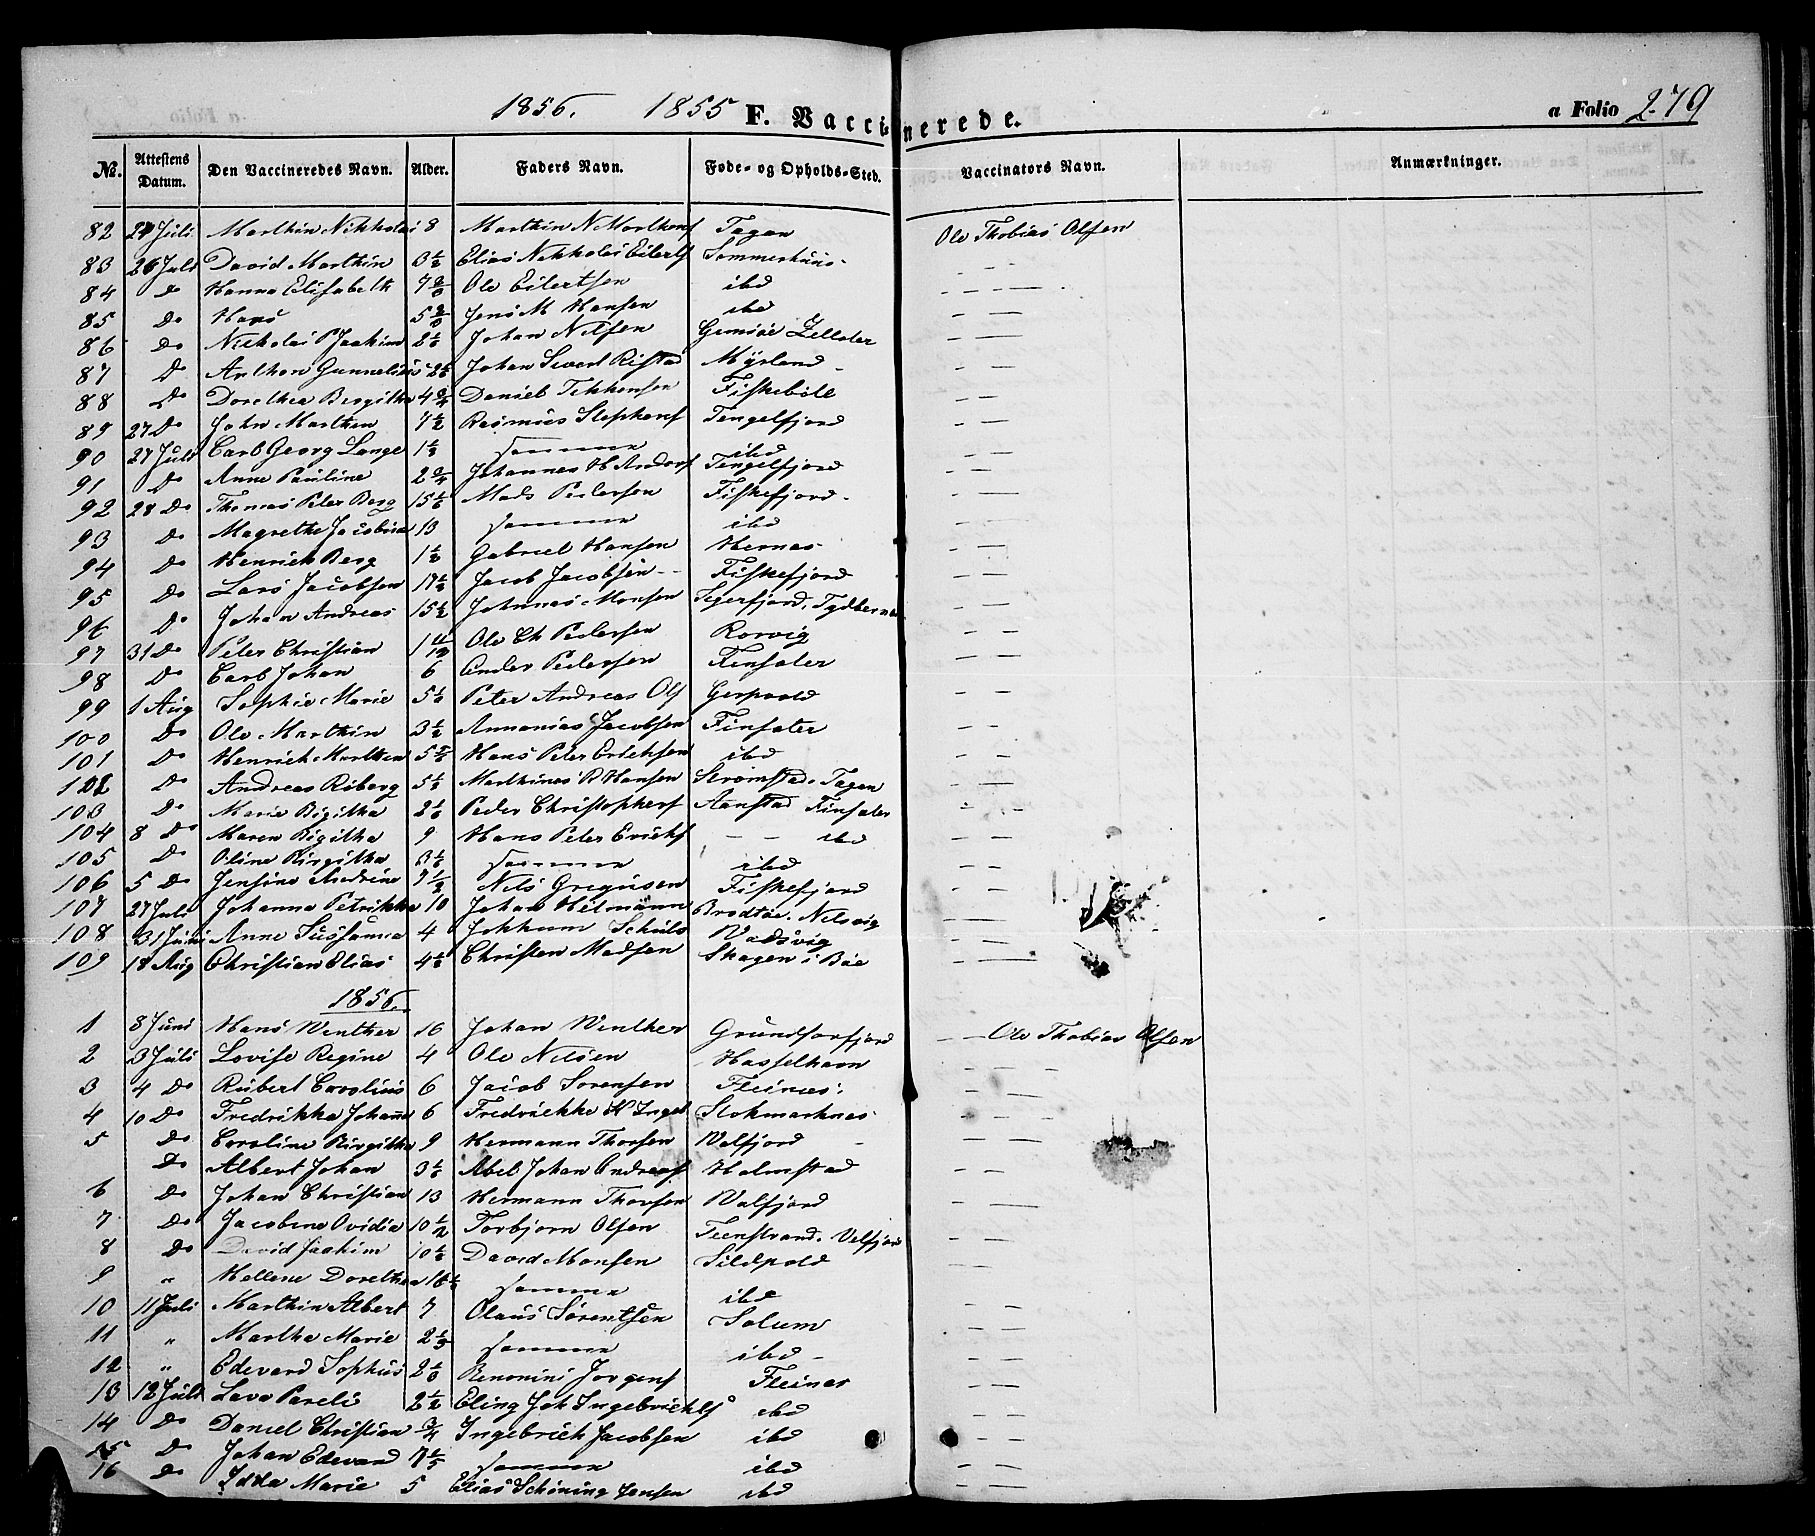 1856. 1855 F. Vaccinerede. a Folio 279
No. Attestens Datum. Den Vaccineredes Navn. Alder. Faders Navn. Føde- og Opholds-Sted. Vaccinators Navn. Anmærkninger.
82 24 Juli Marthin Nikholai 8 Marthin N Tagan Ole Thobias Olsen
83 26 Juli David Marthin 3½ Elias Nikholai Eilerts Sommerhuus
84 Do Hanna Elisabeth 7 Ole Eilertsen ibd
85 Do Hans 5 Jens M Hansen ibd
86 Do Nickolai PJoakim 2 Johan Nilsen Gimsøe
87 D Anthon 2 Johan Myrland
88 Do Dorethea Bergitha 4¾ Daniel Tekkensen Fiskebøle
89 27 Do John Marthin 7½ Rasmus Stephens Tengelfjord
90 27 Juli Carl Georg Lange 1½ samme ibd
91 Do Anne Pauline 2¾ Johannes H Tengelfjord
92 28 Do Thomas Peter Berg 15 Mads Pedersen Fiskefjord
93 Do Magrethe Jacobine 13 samme ibd
94 Do Henrich Berg 1½ Gabriel Hansen Hernes
95 Do Lars Jacobsen 17 Jacob Jacobsen Fiskefjord
96 Do Johan Andreas 15½ Johnnes Monsen Segerfjord,
97 31 Do Peter Christian 1 4/12 Ole Ch Pedersen Rorvig
98 Do Carl Johan 6 Ander Pedersen Finsæter
99 1 Aug Sophie Marie 5 Peter Andreas Ols
100 Do Ole Marthin 3½ Annanias Jacobsen Finsæter
101 Do Henrich Marthin 5 Hans Peter Erichsen ibd
102 Do Andreas Riberg 5 Marthines P Hansen Strømstad. Tagan
103 Do Marie Bigitha 2 Peder Christophers Aanstad Finsæter
104 8 Do Maren Bigitha 9 Hans Peter Erichs ibd
105 Do Oline Birgitha 3 samme ibd
106 5 Do Jensine Andrine 7½ Nils Gregusen Fiskefjord
107 27 Juli Johanna Petrikka 10 Johan Hilmann Brodtøe. Nilsvig
108 31 Juni Anne Sussanna 4 Jokkum Schuls Vadsvig
109 18 Aug Christian Elias 4 Christen Madsen Skagen i Bøe
1856.
1 8 Juni Hans Winther 16 Johan Winther Grundforfjord Ole Thobias Olsen
2 3 Juli Lovise Regine 4 Ole Nilsen Hasselhavn
3 4 Do Rubert Carolius 6 Jacob Sorensen Fleinæs
4 10 Do Fredrikka Johanne 6 Fredrikke H Stokmarknæs
5 Do Caroline Birgitha 9 Hermann Thorsen Valfjord
Do Albert Johan 3 Abel Johan Andreas Holmstad
6 Do Johan Christian 13 Hermann Thorsen Valfjord
7 Do Jacobine Ovidia 10½ Torbjorn Olsen Teenstrand. Velfjord
8 Do David Joakim 10 David Monsen Sildpold
9 " Hellene Dorethea 16 samme ibd
10 11 Juli Marthin Albert 7 Olaus Sørentsen Solum
11 " Martha Marie 2 samme ibd
12 " Edevard Sophus 2 Benonini Jorgens Fleines
13 12 Juli Lava Pareli 2½ Eling Joh Ingebrichts ibd
14 Do Daniel Christian ¾ Ingebrich Jacobsen ibd
15 Do Johan Edevard 7 samme ibd
16 Do Idda Marie 5 Elias Schøning Jensen ibd